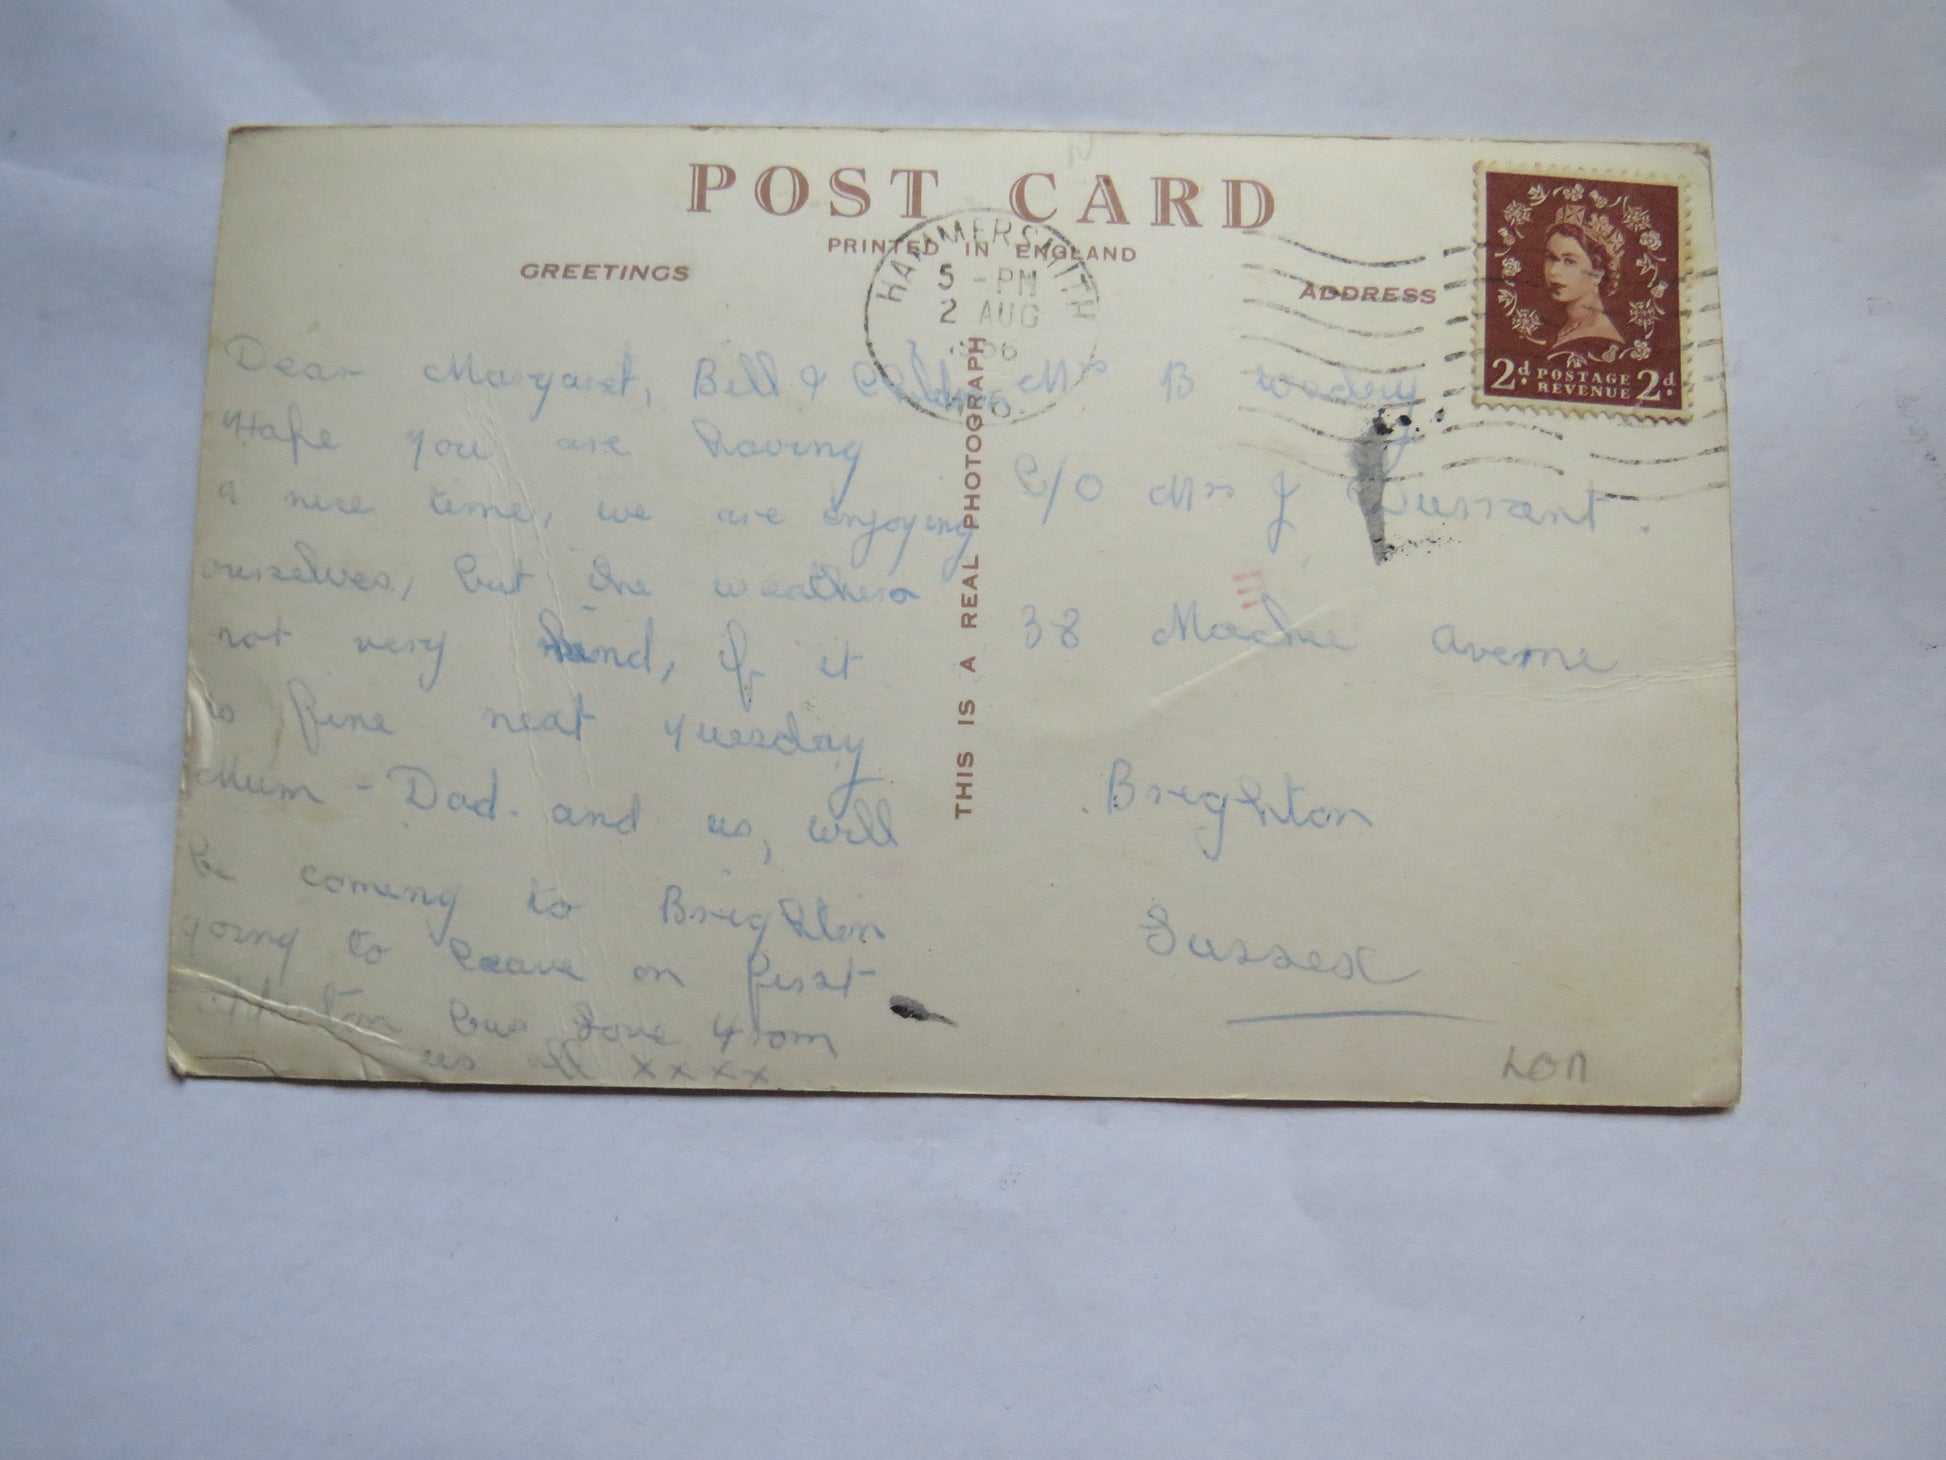 POST CARD
PRINTED IN ENGLAND
GREETINGS
ADDRESS
HAMMERSMITH
5 - PM
2 AUG
56
2d. POSTAGE REVENUE 2d.
THIS IS A REAL PHOTOGRAPH
Dear Margaret, Bill &
Hope you are having
a nice time, we are enjoying
ourselves, but the weather
not very kind, if it
is fine next Tuesday
Mum - Dad. and us, will
be coming to Brighton
going to leave on first
bus Love from
us all xxxx
Mrs B
C/O Mrs J Durrant.
38 Avenue
Brighton
Sussex
LON